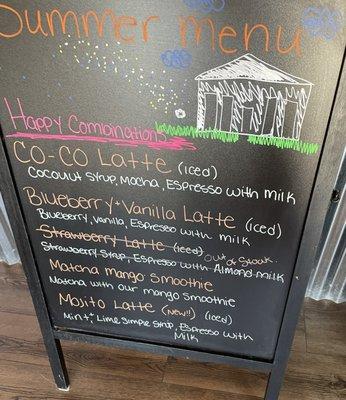 Summer menu
Happy Combinations
Co-Co Latte (iced)
Coconut Syrup, Mocha, Espresso with milk
Blueberry + Vanilla Latte (iced)
Blueberry, Vanilla, Espresso with milk
Strawberry Latte (iced) Out of Stock
Strawberry Syrup, Espresso with Almond milk
Matcha mango Smoothie
Matcha with our mango smoothie
Mojito Latte (New!!) (iced)
Mint + Lime Simple Syrup, Espresso with
Milk